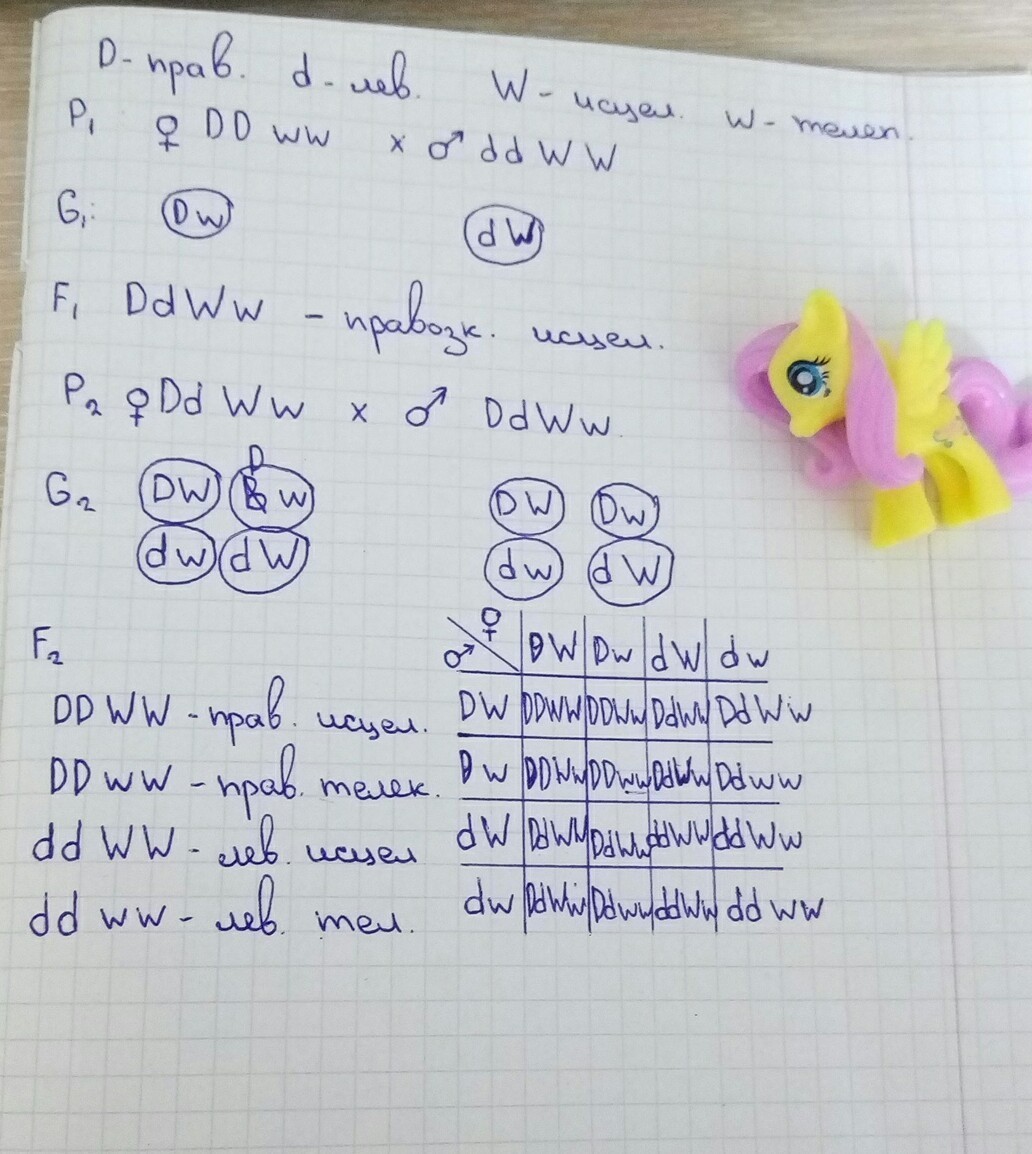 D - прав. d - лев. W - исцел. w - телеп.
P₁ ♀ DD ww x ♂ dd WW
G₁: Dw dW
F₁ DdWw - правозк. исцел.
P₂ ♀ Dd Ww x ♂ DdWw.
G₂ DW Dw DW Dw
dw dW dw dW
F₂
DD WW - прав. исцел.
DD ww - прав. телек.
dd WW - лев. исцел
dd ww - лев. тел.
♂ ♀ DW Dw dW dw
DW DDWW DDWw DdWW DdWw
Dw DDWw DDww DdWw Ddww
dW DdWW DdWw ddWW ddWw
dw DdWw Ddww ddWw ddww